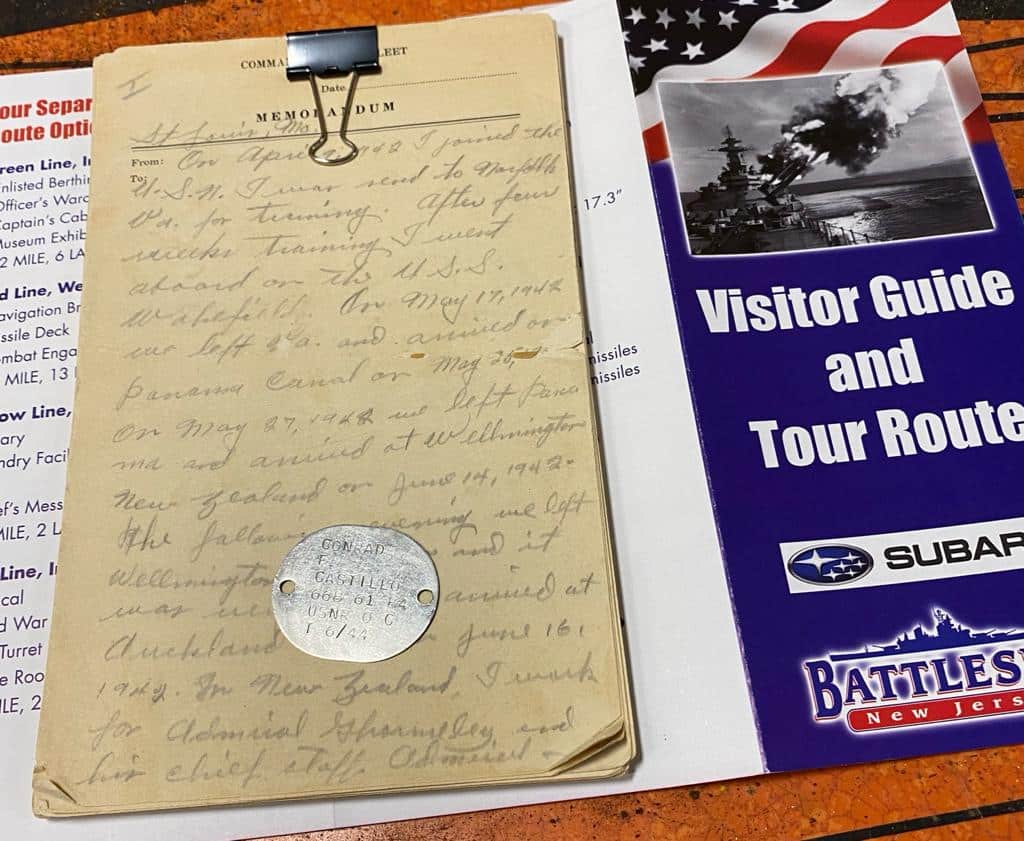 our Separ
oute Opti
reen Line, I
nlisted Berthi
Officer's Ward
Captain's Cab
Museum Exhib
2 MILE, 6 LA
d Line, We
avigation Br
ssile Deck
ombat Enga
MILE, 13
ow Line,
ary
ndry Facil
ef's Mess
MILE, 2 L
Line, I
cal
d War
Turret
e Roo
ILE, 2
I
COMMA LEET
Date
MEMORANDUM
From:
To:
St Louis, Mo.
On April 1942 I joined the
U.S.N. I was send to Norfolk
Va. for training. After four
weeks training I went
aboard on the U.S.S.
Wakefield. On May 17, 1942
we left Va. and arrived on
Panama Canal on May 25,
On May 27, 1942 we left Pana
ma and arrived at Wellmington
New Zealand on June 14, 1942.
the following evening we left
Wellmington and it
was arrived at
Auckland June 16,
1942. In New Zealand, I work
for Admiral Ghormeley and
his chief staff Admiral
CONRAD
F
CASTILLO
USNR O C
T 6/44
17.3"
missiles
missiles
Visitor Guide
and
Tour Route
SUBAR
BATTLESH
New Jers